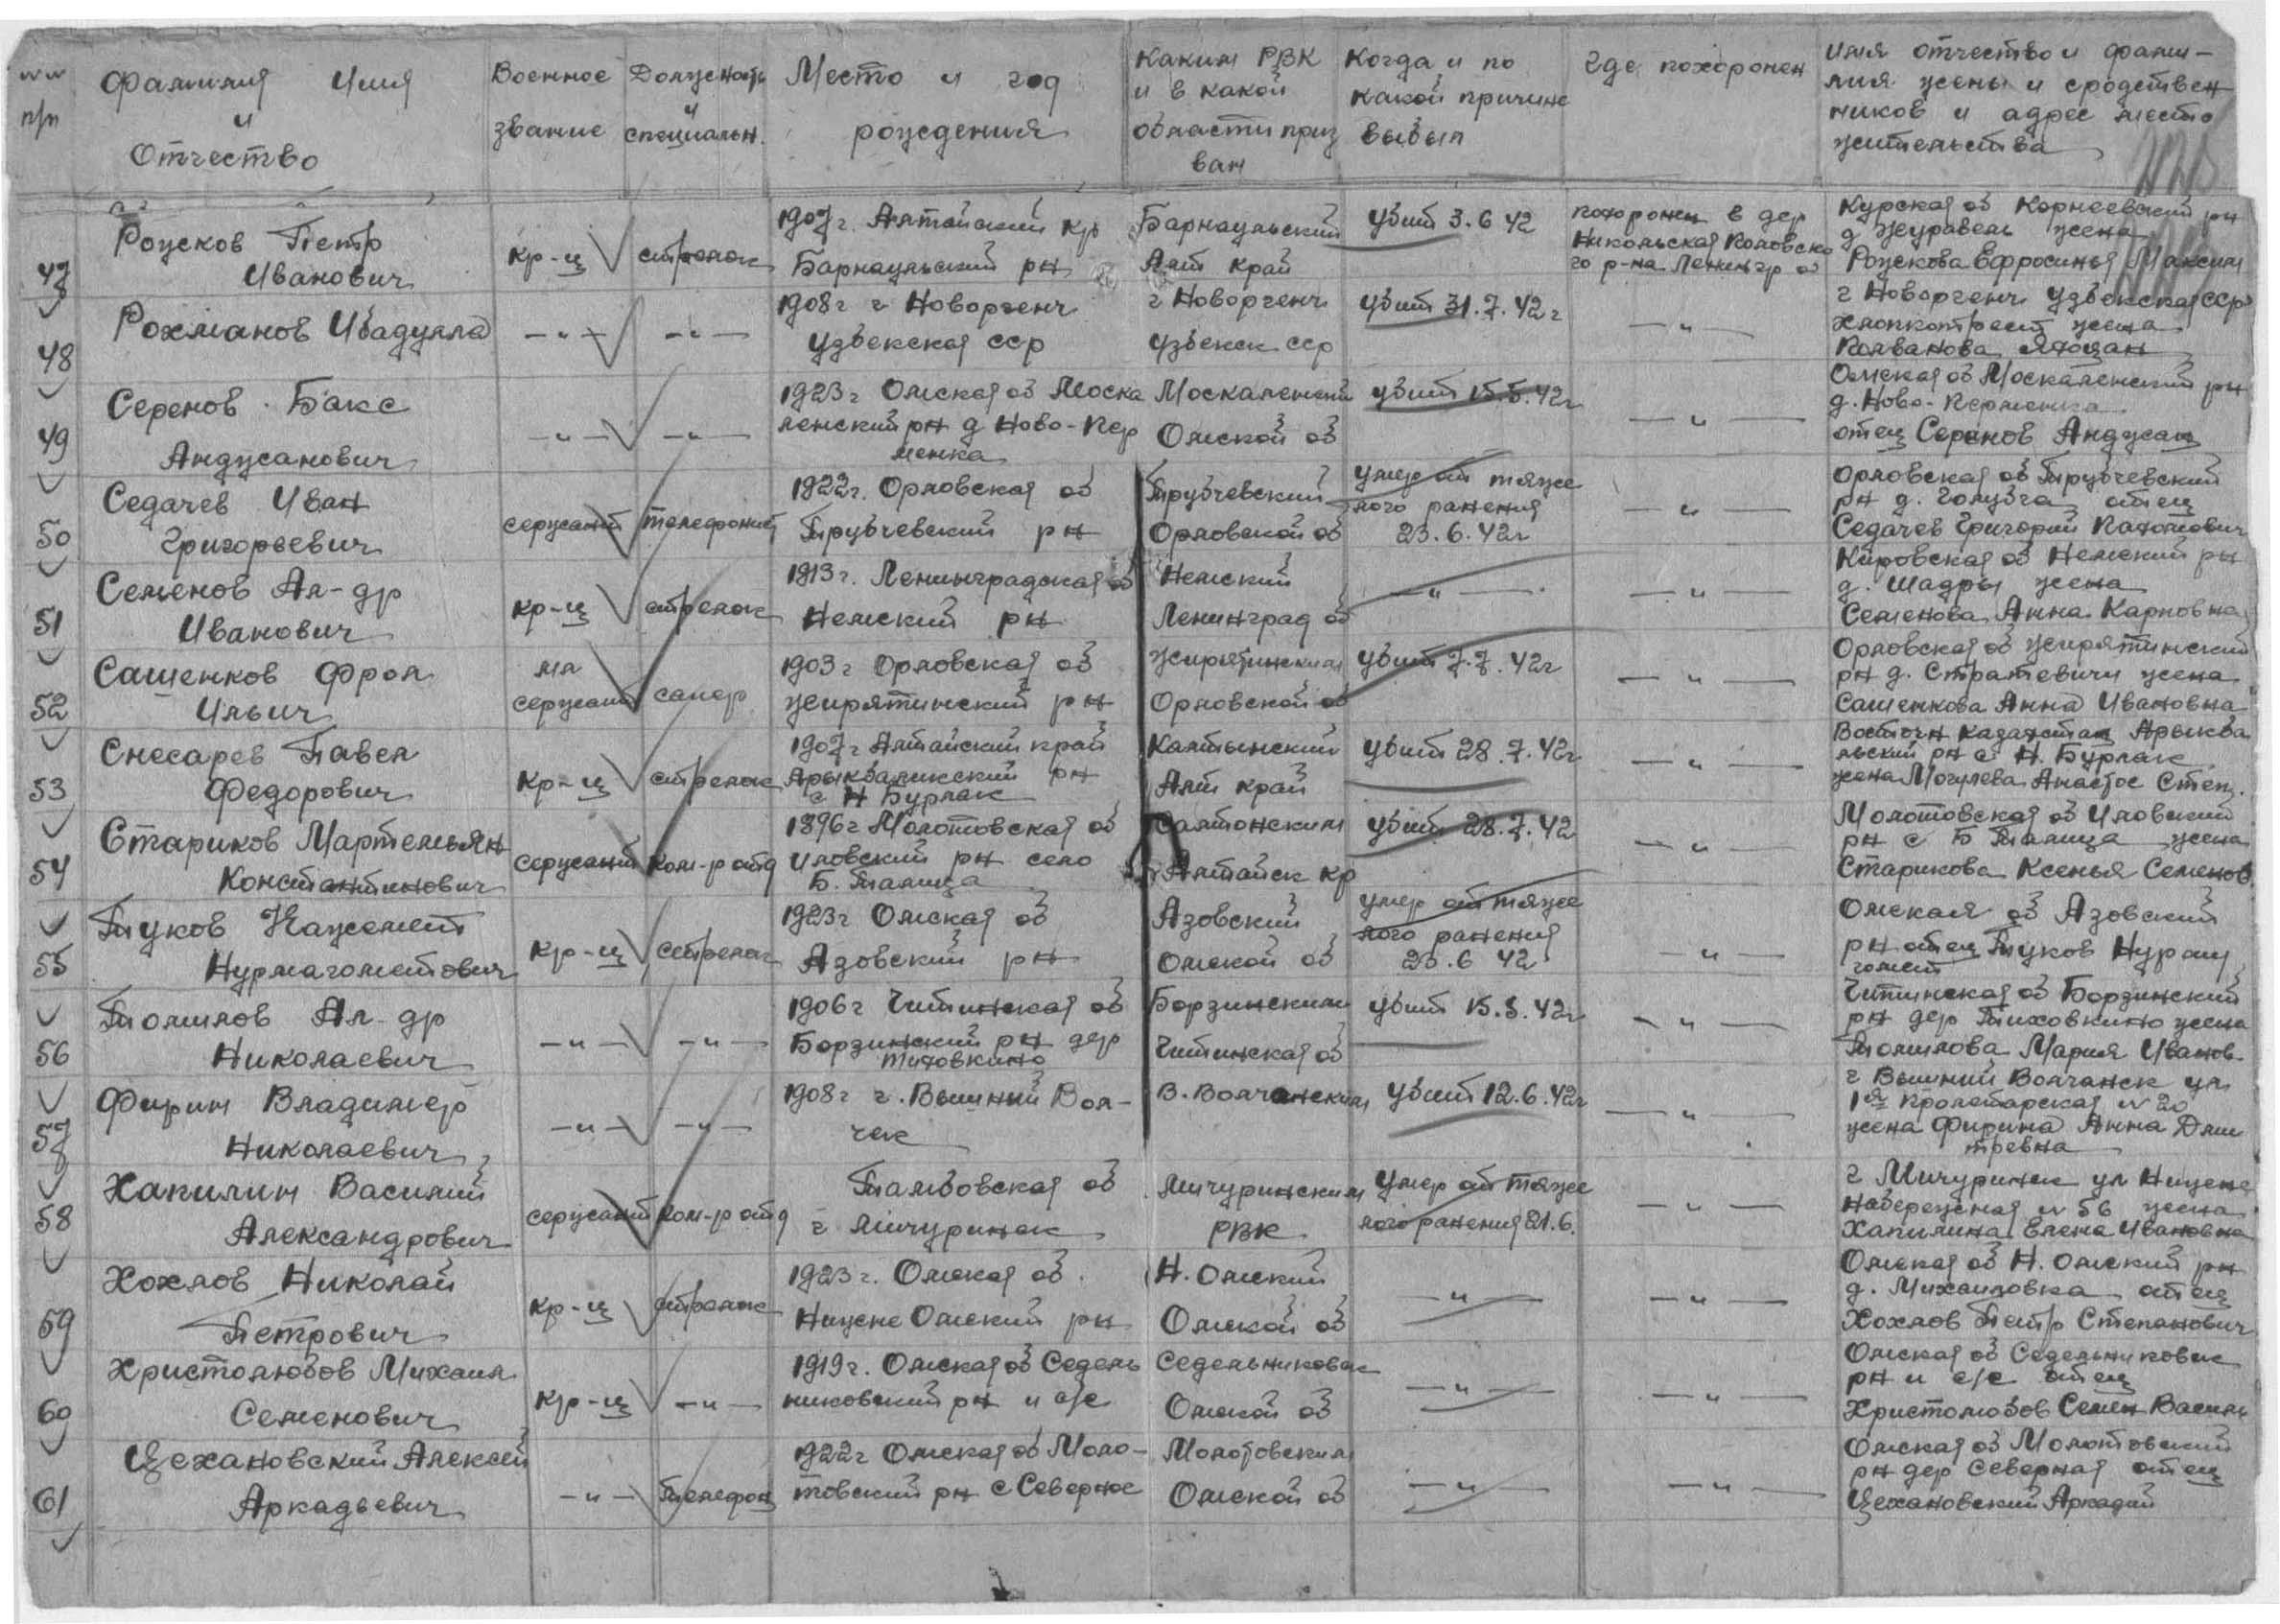 №№ Фамилия Имя Военное Должность Место и год Каким РВК Когда и по Где похоронен Имя отчество и фами-
п/п и звание и рождения и в какой какой причине лия жены и сродствен
Отчество специальн. области приз выбыл ников и адрес место
ван жительства
47 Рожсков Петр Иванович кр-ц стрелок 1907г. Алтайский кр Барнаульский рн Барнаульский Алт край убит 3.6 42 похоронен в дер Никольская Коловско го р-на Ленингр об Курская об Корнеевский рн д Журавель жена Рожскова Ефросинья Максим
48 Рохманов Ибадулла —"— —"— 1908г г Новоргенч Узбекская ССР г Новоргенч Узбекск ССР убит 31.7.42г —"— г Новоргенч Узбекская ССР Хлопкотрест жена
49 Серенов Бакс Андусанович —"— —"— 1923г Омская об Моска ленский рн д Ново-Кер менка Москаленский Омской об убит 15.5.42г —"— Омская об Москаленский рн д. Ново-Керменка отец Серенов Андусан
50 Седачев Иван Григорьевич сержант телефонист 1922г. Орловская об Трубчевский рн Трубчевский Орловской об умер от тяже лого ранения 23.6.42г —"— Орловская об Трубчевский рн д. Голубча отец Седачев Григорий
51 Семенов Ал-др Иванович кр-ц стрелок 1913г. Ленинградская об Немский рн Немский Ленинград об —"— —"— Кировская об Немский рн д. Шадры жена Семенова Анна Карповна
52 Сащенков Фрол Ильич мл сержант сапер 1903г Орловская об Жирятинский рн Жирятинским Орловской об убит 7.7.42г —"— Орловская об Жирятинский рн д. Стратевичи жена Сащенкова Анна Ивановна
53 Снесарев Павел Федорович кр-ц стрелок 1907г Алтайский край Арыкбалыкский рн с Н Бурлак Калтынский Алт край убит 28.7.42г —"— Восточн Казахстан Арыкба льский рн с Н. Бурлак жена Могулева Анастос Степ.
54 Стариков Мартемьян Константинович сержант ком-р отд 1896г Молотовская об Иловский рн село Б. Талица Салтонским Алтайск кр убит 28.7.42 —"— Молотовская об Иловский рн с Б Талица жена Старикова Ксенья Семенов
55 Туков Кажемет Нурмагометович кр-ц стрелок 1923г Омская об Азовский рн Азовский Омской об умер от тяже лого ранения 23.6 42 —"— Омская об Азовский рн отец Туков Нурма гомет
56 Томилов Ал-др Николаевич —"— —"— 1906г Читинская об Борзинский рн дер Тиховкино Борзинским Читинская об убит 15.5.42г —"— Читинская об Борзинский рн дер Тиховкино жена Томилова Мария Иванов-
57 Фирин Владимер Николаевич —"— —"— 1908г г. Вышний Вол- чек В. Волчанским убит 12.6.42г —"— г Вышний Волчанск ул 1ая Пролетарская № 20 жена Фирина Анна Дми тревна
58 Хапилин Василий Александрович сержант ком-р отд Тамбовская об г Мичуринск Мичуринским РВК умер от тяже лого ранения 21.6. —"— г Мичуринск ул Нижне Набережная № 56 жена Хапилина Елена Ивановна
59 Хохлов Николай Петрович кр-ц стрелок 1923г. Омская об. Нижне Омский рн Н. Омский Омской об —"— —"— Омская об Н. Омский рн д. Михаиловка отец Хохлов Петр Степанович
60 Христолюбов Михаил Семенович кр-ц —"— 1919г. Омская об Седель никовский рн и с/с Седельниковск Омской об —"— —"— Омская об Седельниковск рн и с/с отец Христолюбов Семен Василь
61 Цехановский Алексей Аркадьевич —"— телефон 1922г Омская об Моло- товский рн с Северное Молотовским Омской об —"— —"— Омская об Молотовский рн дер Северная отец Цехановский Аркадий